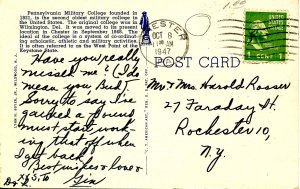 Pennsylvania Military College founded in
1821, is the second oldest military college in
United States. The original college was in
Wilmington, Del. It was moved to its present
location in Chester in September 1868. The
ideal of the college is a system of co-ordinat-
ing scholastic, athletic and military activities.
It is often referred to as the West Point of the
Keystone State.
Have you really
missed me? (I do
mean you, Bud)
Sorry to say I've
gained a pound
must start work-
ing that off when
I get back.
Best wishes & love
Gin
CHESTER
OCT 8
AM
1947
POST CARD
1 CENT
Mr & Mrs Harold Rosser
27 Faraday St.
Rochester 10,
N.Y.